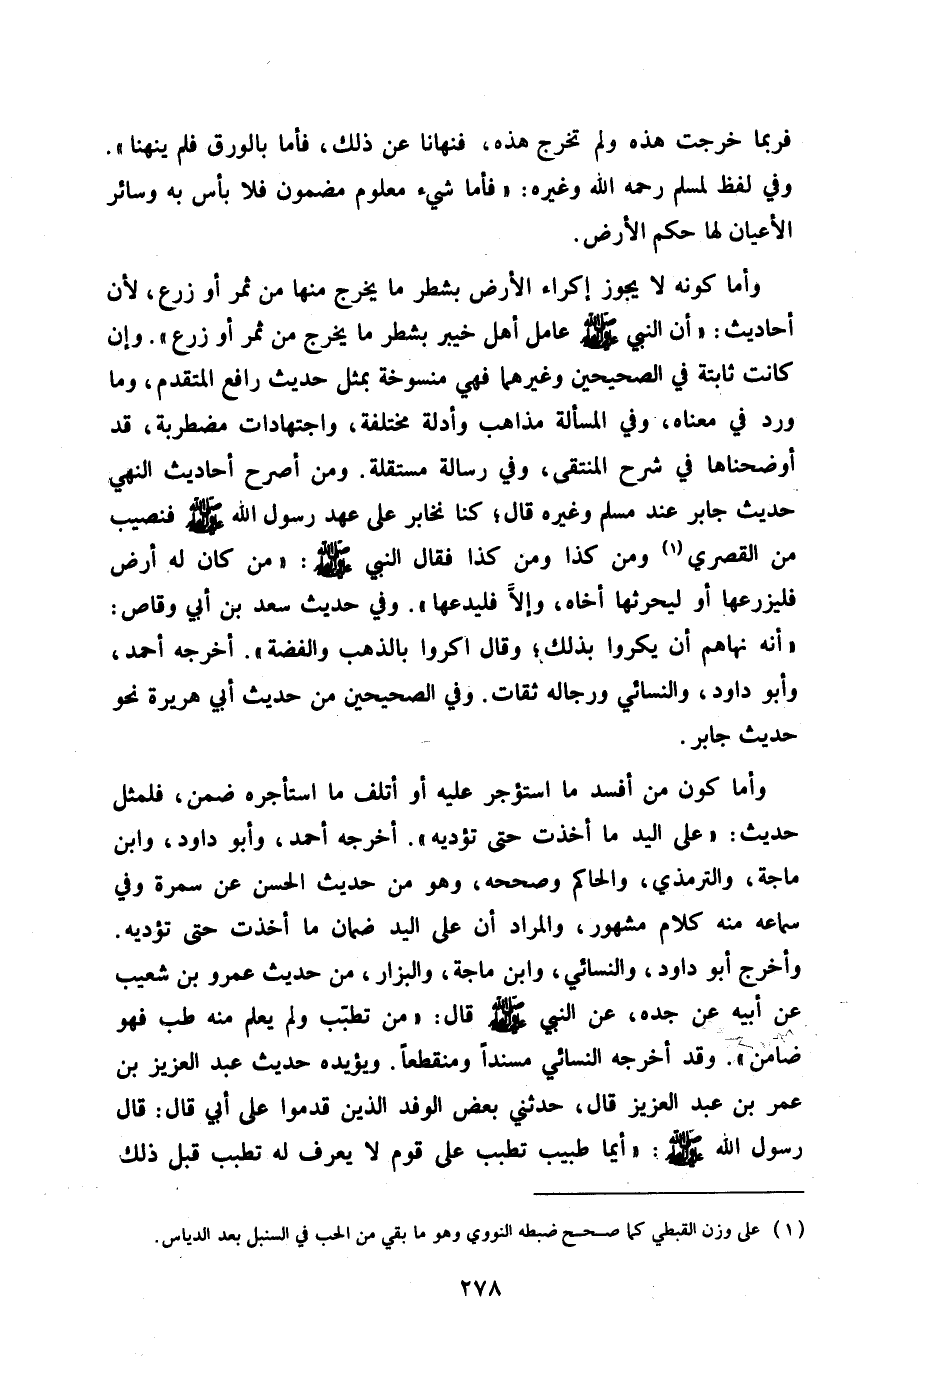 فربما خرجت هذه ولم تخرج هذه، فنهانا عن ذلك، فأما بالورق فلم ينهنا».
وفي لفظ لمسلم رحمه الله وغيره: «فأما شيء معلوم مضمون فلا بأس به وسائر
الأعيان لها حكم الأرض.
وأما كونه لا يجوز إكراء الأرض بشطر ما يخرج منها من ثمر أو زرع، لأن
أحاديث: «أن النبي ﷺ عامل أهل خيبر بشطر ما يخرج من ثمر أو زرع». وإن
كانت ثابتة في الصحيحين وغيرهما فهي منسوخة بمثل حديث رافع المتقدم، وما
ورد في معناه، وفي المسألة مذاهب وأدلة مختلفة، واجتهادات مضطربة، قد
أوضحناها في شرح المنتقى، وفي رسالة مستقلة. ومن أصرح أحاديث النهي
حديث جابر عند مسلم وغيره قال؛ كنا نخابر على عهد رسول الله ﷺ فنصيب
من القصري(١) ومن كذا ومن كذا فقال النبي ﷺ: «من كان له أرض
فليزرعها أو ليحرثها أخاه، وإلاَّ فليدعها». وفي حديث سعد بن أبي وقاص:
«أنه نهاهم أن يكروا بذلك؛ وقال اكروا بالذهب والفضة». أخرجه أحمد،
وأبو داود، والنسائي ورجاله ثقات. وفي الصحيحين من حديث أبي هريرة نحو
حديث جابر.
وأما كون من أفسد ما استؤجر عليه أو أتلف ما استأجره ضمن، فلمثل
حديث: «على اليد ما أخذت حتى تؤديه». أخرجه أحمد، وأبو داود، وابن
ماجة، والترمذي، والحاكم وصححه، وهو من حديث الحسن عن سمرة وفي
سماعه منه كلام مشهور، والمراد أن على اليد ضمان ما أخذت حتى تؤديه.
وأخرج أبو داود، والنسائي، وابن ماجة، والبزار، من حديث عمرو بن شعيب
عن أبيه عن جده، عن النبي ﷺ قال: «من تطبّب ولم يعلم منه طب فهو
ضامن». وقد أخرجه النسائي مسنداً ومنقطعاً. ويؤيده حديث عبد العزيز بن
عمر بن عبد العزيز قال، حدثني بعض الوفد الذين قدموا على أبي قال: قال
رسول الله ﷺ: «أيما طبيب تطبب على قوم لا يعرف له تطبب قبل ذلك
(١) على وزن القبطي كما صحح ضبطه النووي وهو ما بقي من الحب في السنبل بعد الدياس.
٢٧٨